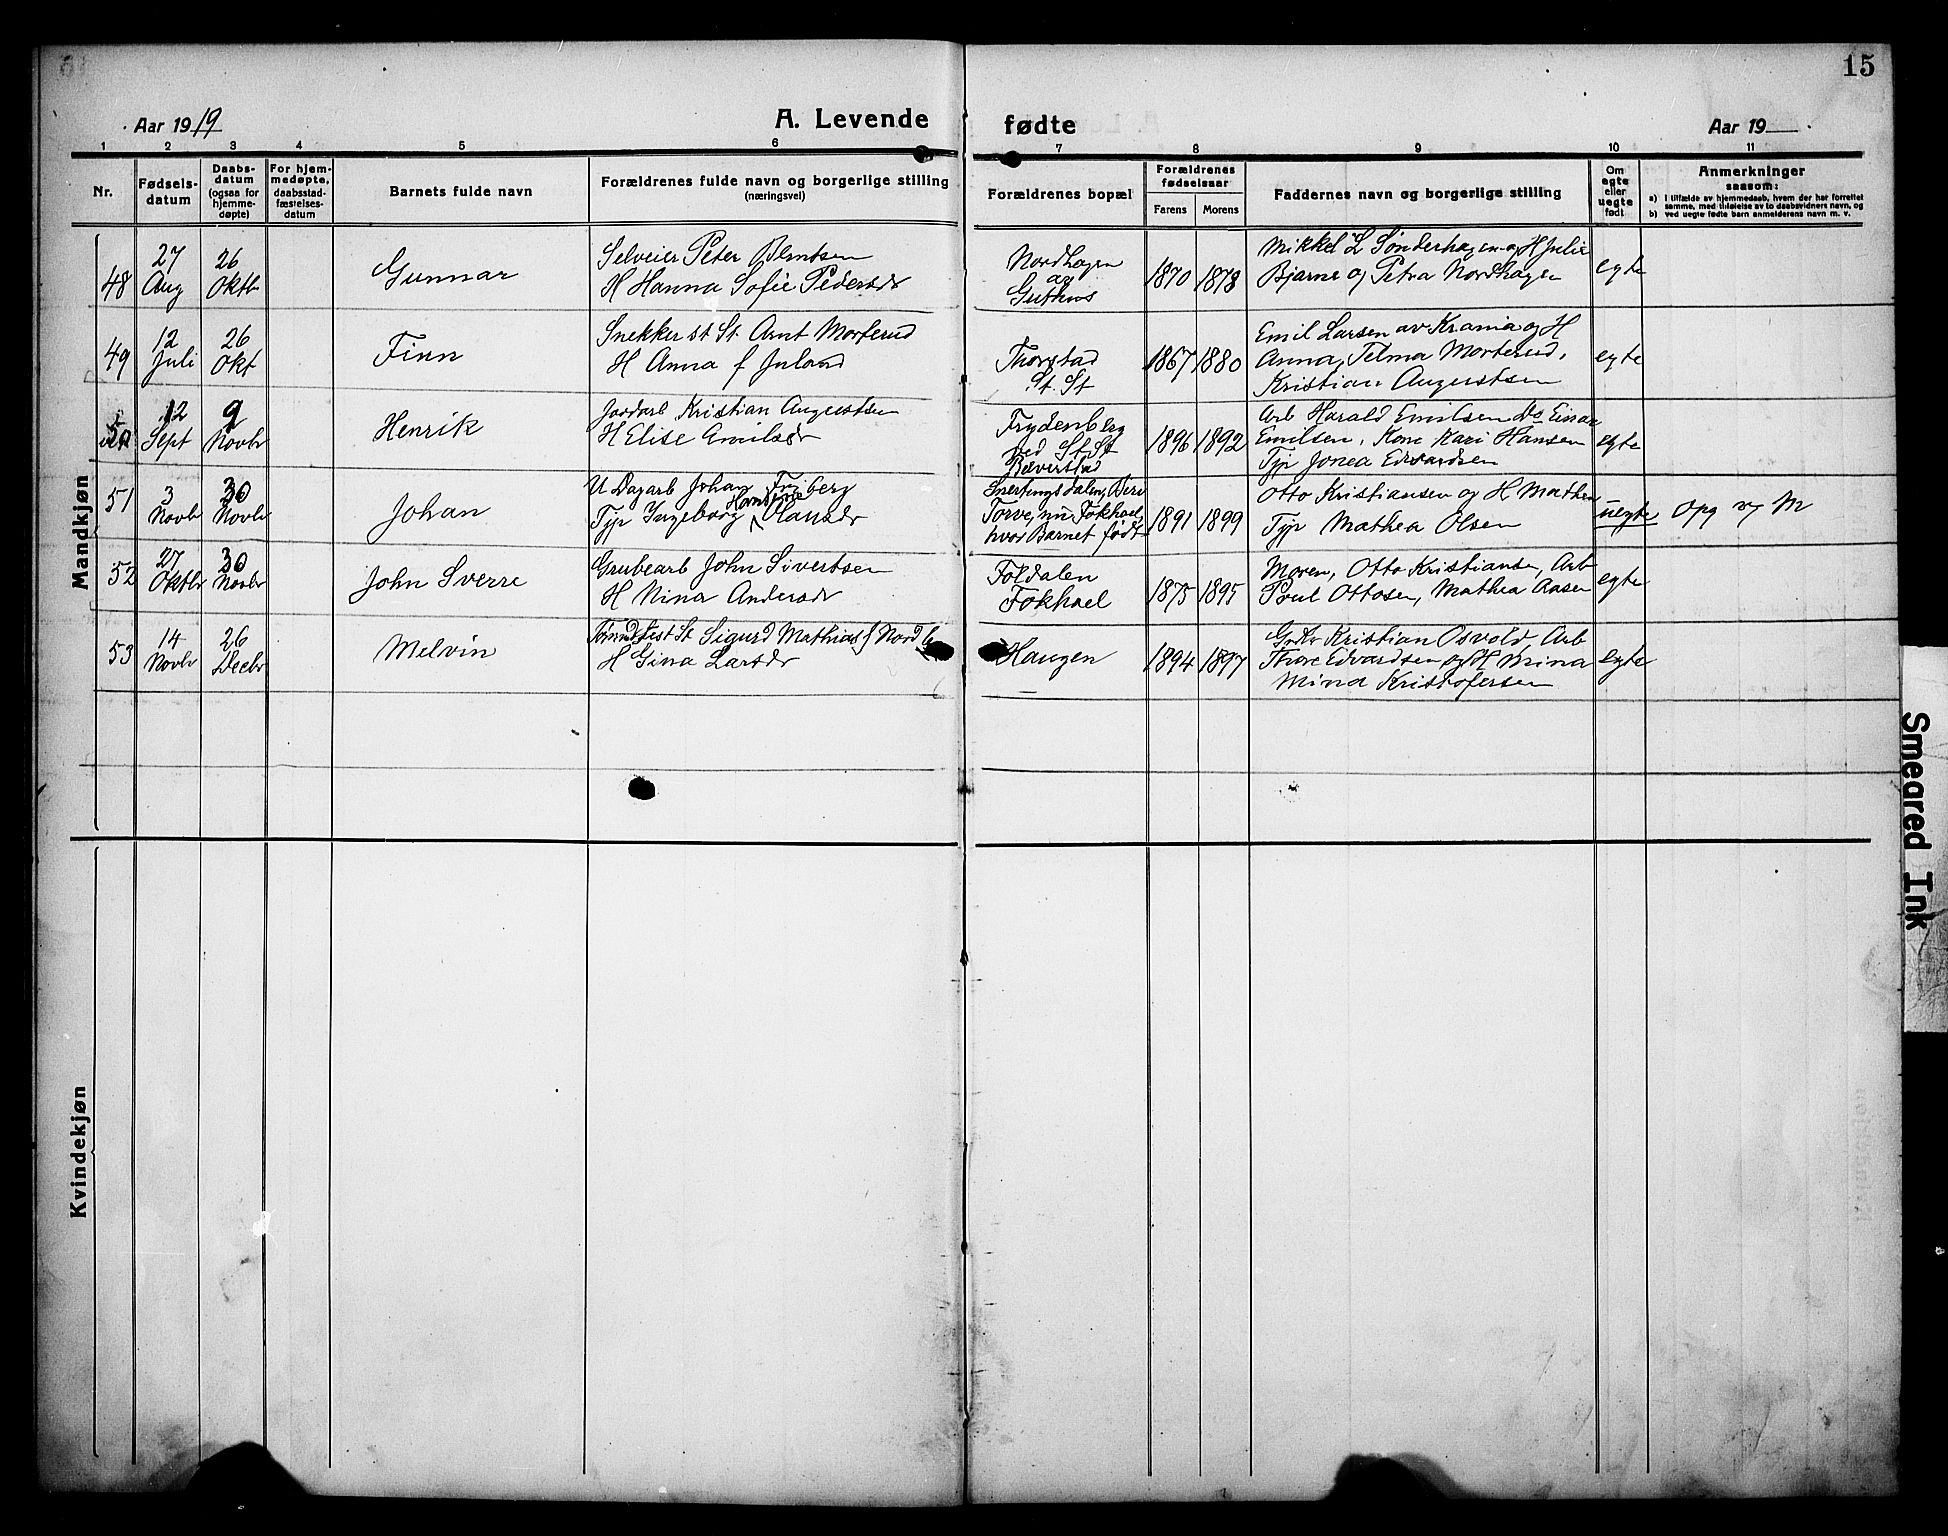 15
Aar 1919
A. Levende fødte
Aar 19
1 2 3 4 5 6 7 8 9 10 11
Nr.
Fødsels-
datum
Daabs-
datum
(ogsaa for
hjemme-
døpte)
For hjem-
medøpte,
daabsstad-
fæstelses-
datum
Barnets fulde navn
Forældrenes fulde navn og borgerlige stilling
(næringsvei)
Forældrenes bopæl
Forældrenes
fødselsaar
Farens Morens
Faddernes navn og borgerlige stilling
Om
egte
eller
uegte
født
Anmerkninger
saasom:
a) I tilfælde av hjemmedaab, hvem der har forrettet
samme, med tilføielse av to daabsvidners navn, og
b) ved uegte fødte barn anmelderens navn m. v.
Mandkjøn
48
27
Aug
26
Oktb
Gunnar
Selveier Peter Berntsen
H Hanna Sofie Pedersdr
Nordhagen
og
Guthus
1870 1878
Mikkel L Sønderhagen og H Julie
Bjarne og Petra Nordhagen
egte
49
12
Juli
26
Okt
Finn
Snekker st St. Arnt Morterud
H Anna f Juland
Thorstad
St. St
1867 1880
Emil Larsen av Krania og H
Anna, Telma Morterud,
Kristian Augustsen
egte
50
12
Sept
9
Novbr
Henrik
Jordarb Kristian Augustsen
H Elise Emilsdr
Frydenberg
ved St. St
Bæverstad
1896 1892
Arb Harald Emilsen Do Einar
Emilsen, Kone Kari Hansen
Typ Jonea Edvardsen
egte
51
3
Novbr
30
Novbr
Johan
U Dagarb Johan Friberg
Typ Ingeborg Hansine Olausdr
Snertingsdalen, Biri
Torve, nu Fokhoel,
hvor Barnet født
1891 1899
Otto Kristiansen og H Mathea
Typ Mathea Olsen
uegte
Opg v M
52
27
Oktbr
30
Novbr
John Sverre
Grubearb John Sivertsen
H Nina Andersdr
Foldalen
Fokhoel
1875 1895
Moren, Otto Kristiansen, Arb
Poul Ottosen, Mathea Aasen
egte
53
14
Novbr
26
Decbr
Melvin
St Sigurd Mathias f Nord
H Gina Larsdr
Haugen
1894 1897
Kristian Osvold, Arb
Thore Edvardsen og H Mina
Mina Kristofersen
egte
Kvindekjøn
Smeared Ink